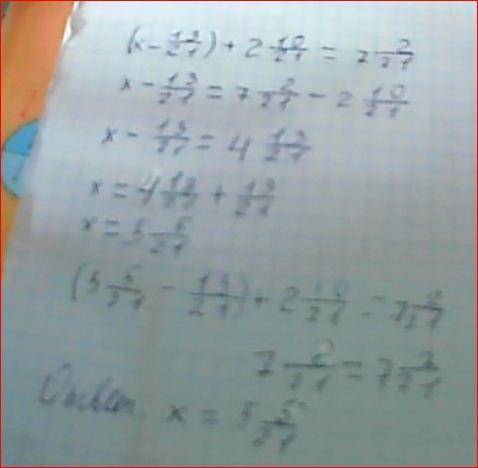 (x - 13/21) + 2 10/21 = 7 2/21
x - 13/21 = 7 2/21 - 2 10/21
x - 13/21 = 4 13/21
x = 4 13/21 + 13/21
x = 5 5/21
(5 5/21 - 13/21) + 2 10/21 = 7 2/21
7 2/21 = 7 2/21
Ответ. x = 5 5/21